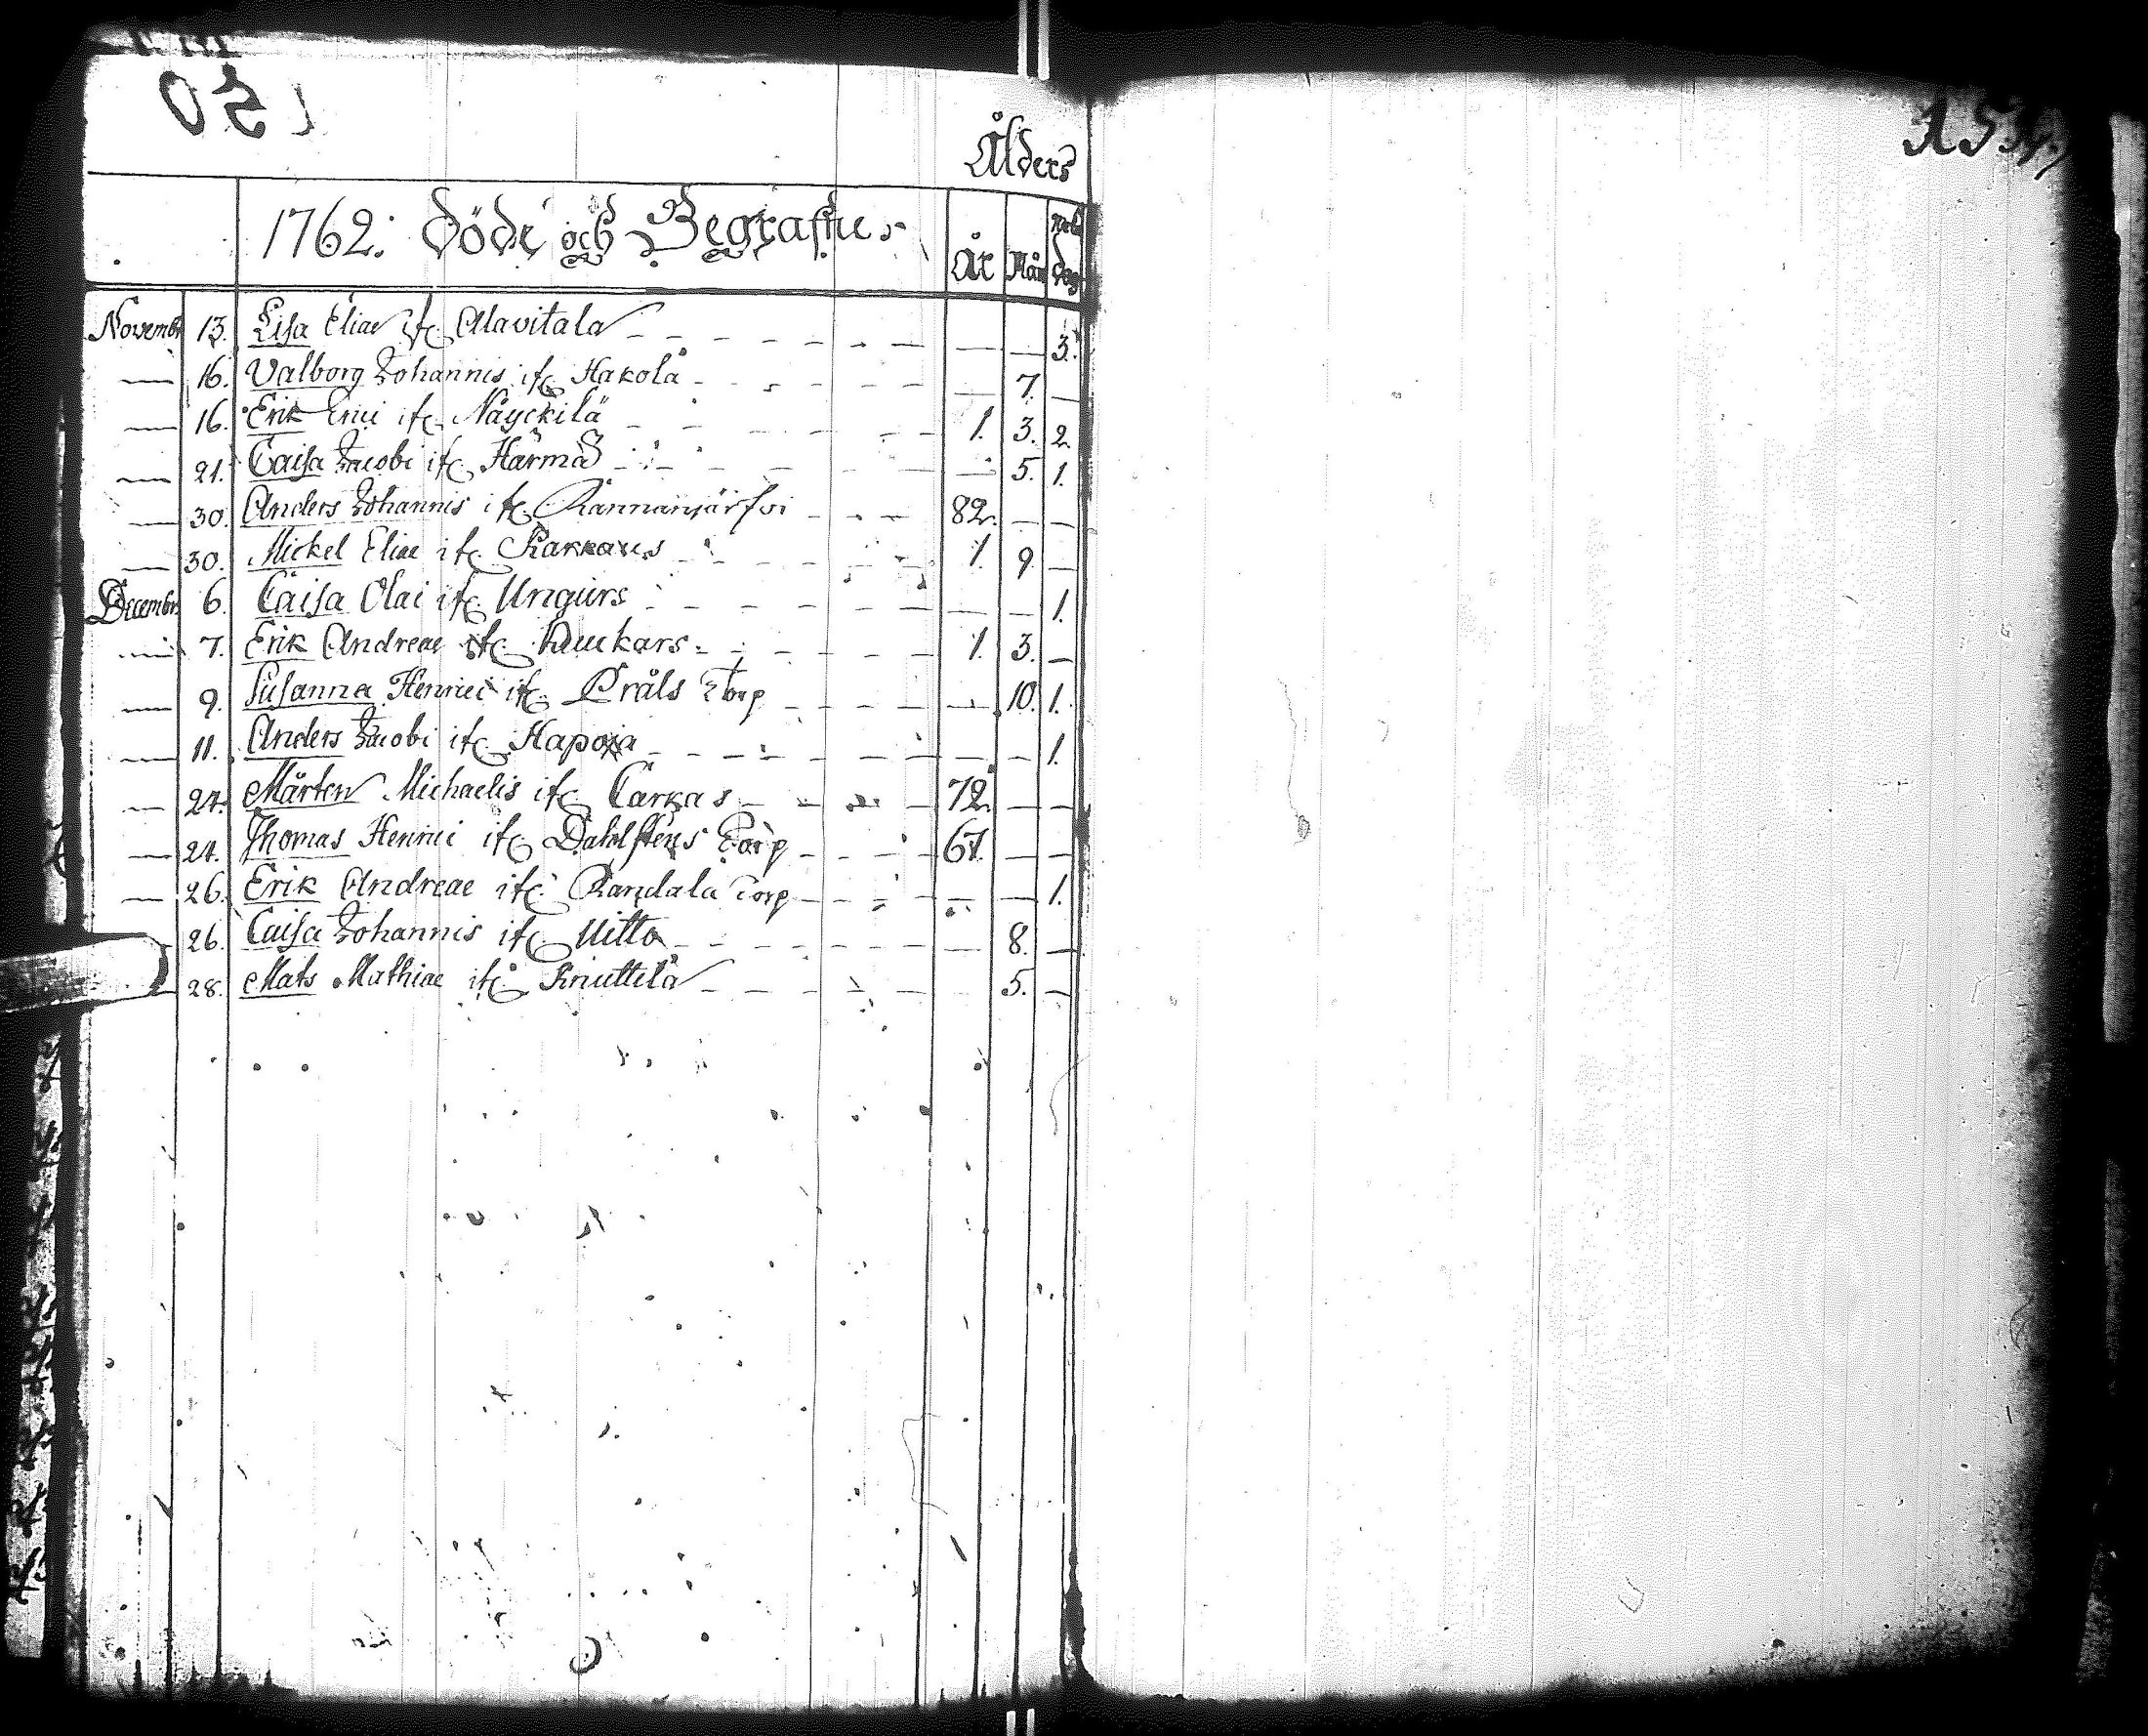 150
Ålders
1762. Döde och Begrafne.
År Mån dag
Novembr 13. Lisa Eliae if. Alavitala — — 3.
— 16. Valborg Johannis if. Hakola — 7. —
— 16. Erik Erici if. Näyckilä 1. 3. 2.
— 21. Caisa Jacobi if. Härmä — 5. 1.
— 30. Anders Johannis if. Kannanjärfvi 82. — —
— 30. Mickel Eliae if. 1. 9. —
Decembr 6. Caisa Olai if. Ungurs — — 1.
— 7. Erik Andreae if. 1. 3. —
— 9. Susanna Henrici if. Pråls Torp — 10. 1.
— 11. Anders Jacobi if. Hapoja — — 1.
— 24. Mårten Michaelis if. Carkas 72. — —
— 24. Thomas Henrici if. Dahlstens Torp 67. — —
— 26. Erik Andreae if. Randala Torp — — 1.
26. Caisa Johannis if. Uitto — 8. —
28. Mats Mathiae if. Knuttila 5. —